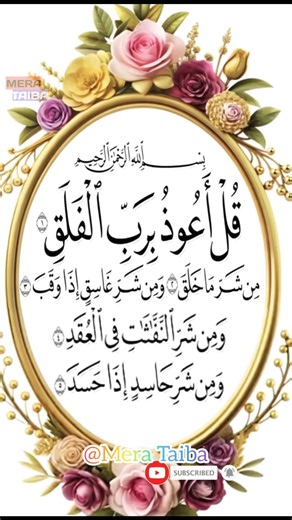 MERA
TAIBA
بِسْمِ اللَّهِ الرَّحْمَٰنِ الرَّحِيمِ
قُلْ أَعُوذُ بِرَبِّ الْفَلَقِ ١
مِن شَرِّ مَا خَلَقَ ٢ وَمِن شَرِّ غَاسِقٍ إِذَا وَقَبَ ٣
وَمِن شَرِّ النَّفَّٰثَٰتِ فِي الْعُقَدِ ٤
وَمِن شَرِّ حَاسِدٍ إِذَا حَسَدَ ٥
@Mera Taiba
SUBSCRIBED